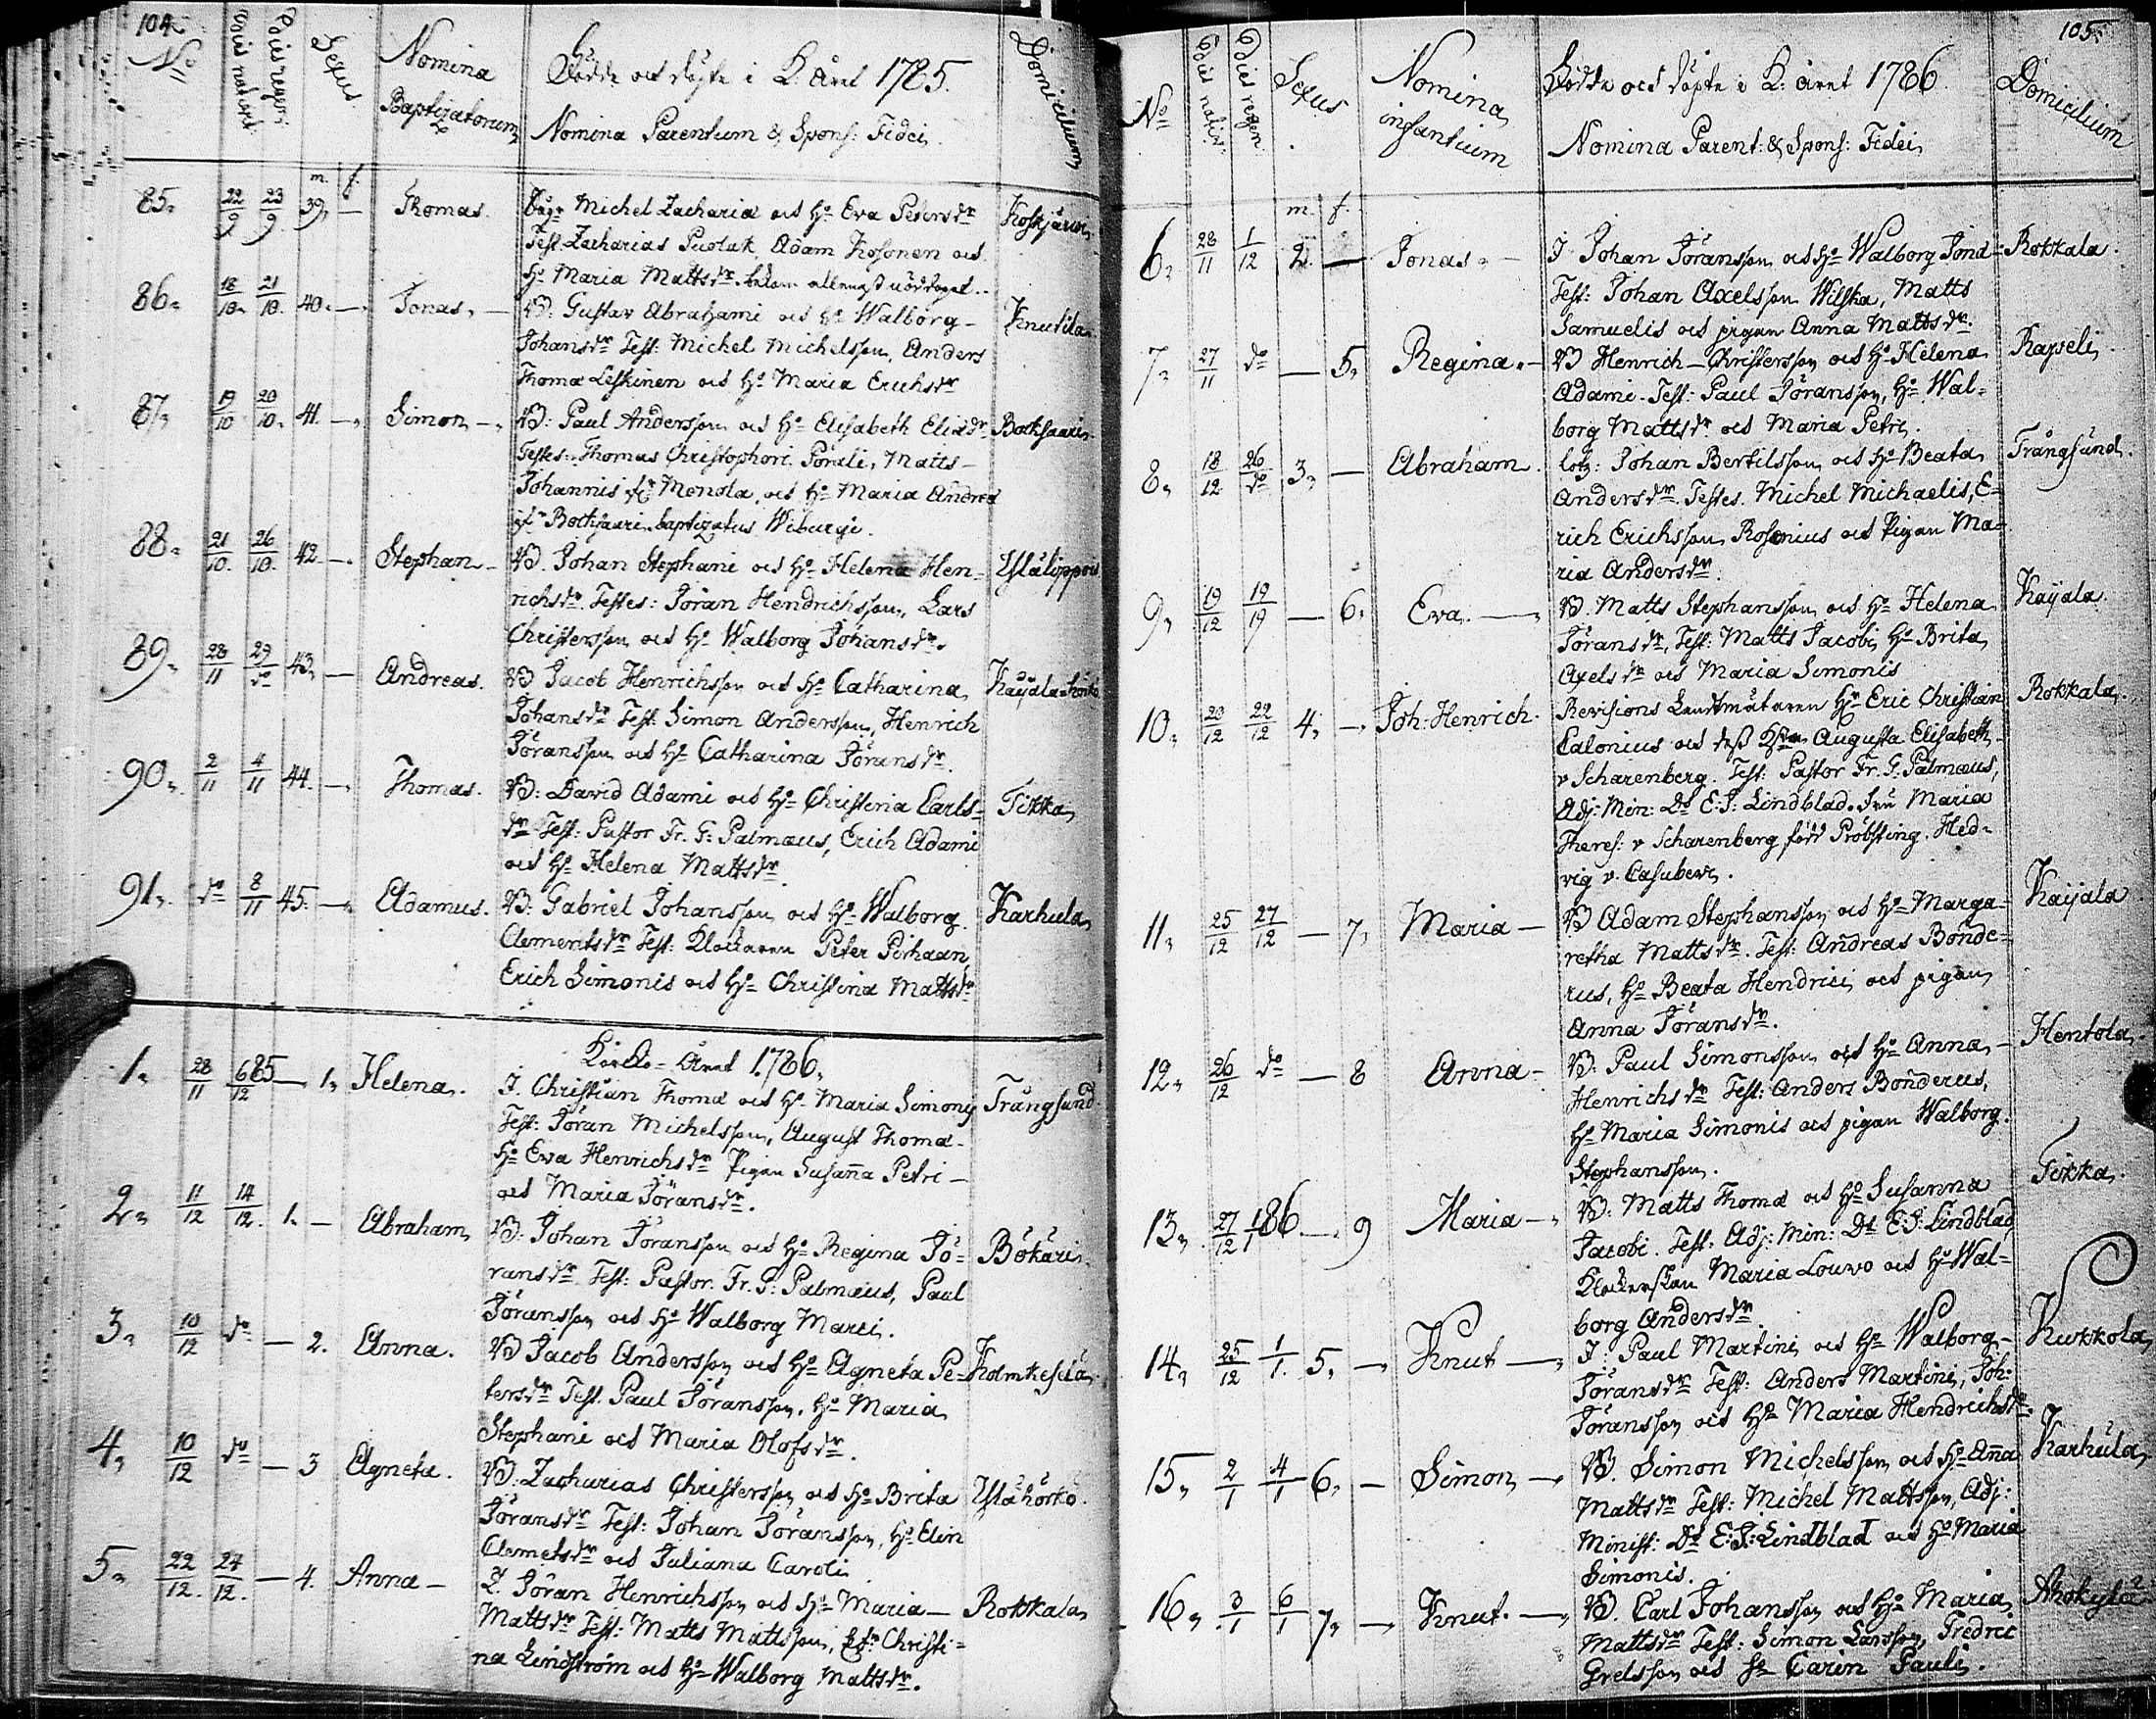 104.
No
Dies nativit.
Dies regen.
Sexus.
Nomina
Baptizatorum
Födde och döpte i K. året 1785.
Nomina Parentum & Spons: Fidei.
Domicilium
m. f.
85. 22/9 23/9 39. — Thomas. Michel Zachariæ och H: Eva Petersdr Koskjärwi
Test. Zacharias Puolak, Adam Kosonen och
H: Maria Mattsdr.
86. 18/10. 21/10. 40. — Jonas. — B. Gustav Abrahami och H: Walborg — Knutila
Johansdr Test: Michel Michelsson, Anders
Thomæ Leskinen och H: Maria Erichsdr
87. 19/10 20/10. 41. — Simon — B: Paul Andersson och H: Elisabeth Eliædr Bocksaari
Testes: Thomas Christophori Porali, Matts —
Johannis fr Monola, och H: Maria Andreæ
fr Bothsaari baptizatus Wiburgi.
88. 21/10. 26/10. 42 — Stephan — B. Johan Stephani och H: Helena Hen-
richsdr. Testes: Jöran Hendrichsson, Lars
Christersson och H: Walborg Johansdr.
89. 28/11 29/do 43. — Andreas. B Jacob Henrichsson och H: Catharina Kayala
Johansdr Test: Simon Andersson, Henrich
Jöransson och H: Catharina Jöransdr.
90. 2/11 4/11 44. — Thomas. B: David Adami och H: Christina Carls- Tikka
dr Test: Pastor Fr. G: Palmæus, Erich Adami
och H: Helena Mattsdr
91. do 8/11 45. — Adamus. B: Gabriel Johansson och H: Walborg Karhula
Clementsdr Test: Klockaren Peter Pirhaan
Erich Simonis och H: Christina Mattsdr
Kyrko-Året 1786.
1. 28/11 6/12 85 — 1. Helena. I. Christian Thomæ och H: Maria Simonis Trångsund.
Test: Jöran Michelsson, August Thomæ
H: Eva Henrichsdr Pigan Susanna Petri —
och Maria Jöransdr.
2. 11/12 14/12. 1. — Abraham B: Johan Jöransson och H: Regina Jö- Bökäri
ransdr. Test: Pastor Fr. G: Palmæus, Paul
Jöransson och H: Walborg Marci.
3. 10/12 do — 2. Anna. B Jacob Andersson och H: Agneta Pe- Kolmikeselä
tersdr Test. Paul Jöransson, H: Maria
Stephani och Maria Olofsdr.
4. 10/12 do — 3 Agneta. B: Zacharias Christersson och H: Brita Ylähörkö.
Jöransdr Test: Johan Jöransson, H: Elin
Clemetsdr och Juliana Caroli
5. 22/12. 24/12. — 4. Anna — I. Jöran Henrichsson och H: Maria — Rokkala
Mattsdr Test: Matts Mattsson, Christi-
na Lindström och H: Walborg Mattsdr.
105.
No
Dies nativ.
Dies regen
Sexus
Nomina
infantium
Födde och döpte i K: året 1786
Nomina Parent: & Spons: Fidei
Domicilium
m. f.
6. 28/11 1/12 2. — Jonas. — I Johan Jöransson och H: Walborg Rokkala.
Test: Johan Axelsson Wilska, Matts
Samuelis och pigan Anna Mattsdr.
7. 27/11 do — 5. Regina. — B Henrich Christersson och H: Helena Rapeli.
Adami. Test: Paul Jöransson, H: Wal-
borg Mattsdr och Maria Petri.
8. 18/12 26/do 3. — Abraham. Johan Bertilsson och H: Beata Trångsund.
Andersdr. Testes. Michel Michaelis, E-
rich Erichsson Rosenius och Pigan Ma-
ria Andersdr.
9. 19/12 19/19 — 6. Eva. — B. Matts Stephansson och H: Helena Kayala.
Jöransdr, Test: Matts Jacobi, H: Brita
Axelsdr och Maria Simonis
10. 20/12 22/12 4. — Joh: Henrich. Revisions Landtmätaren Hr Eric Christian Rokkala.
Calonius och dess Augusta Elisabeth
v Scharenberg. Test: Pastor Fr. G: Palmæus,
Adj: Min: Ds E: J: Lindblad. Fru Maria
Theres: v Scharenberg född Pröbsting. Hed-
vig v.
11. 25/12 27/12 — 7. Maria — B Adam Stephansson och H: Marga- Kayala
retha Mattsdr. Test: Andreas Bonde-
rus, H: Beata Hendrici och pigan
Anna Jöransdr.
12. 26/12 do — 8 Anna — B: Paul Simonsson och H: Anna — Hentola
Henrichsdr Test: Anders Bonderus,
H: Maria Simonis och pigan Walborg
Stephansson.
13. 27/12 1/1 86 — 9 Maria — B: Matts Thomæ och H: Susanna Tikka.
Jacobi. Test. Adj: Min: Ds E: J: Lindblad,
Klockerskan Maria Louwo och H: Wal-
borg Andersdr.
14. 25/12 1/1. 5. — Knut — I: Paul Martini och H: Walborg — Kukkola
Jöransdr Test: Anders Martini, Joh:
Jöransson och H: Maria Hendrichsdr.
15. 2/1 4/1 6. — Simon — B. Simon Michelsson och H: Anna Karhula
Mattsdr Test: Michel Mattsson, Adj:
Minist: Ds E: J: Lindblad och H: Maria
Simonis.
16. 3/1 6/1 7. — Knut. — B. Carl Johansson och H: Maria
Mattsdr Test: Simon Larsson, Fredric
Grelsson och H: Carin Pauli.